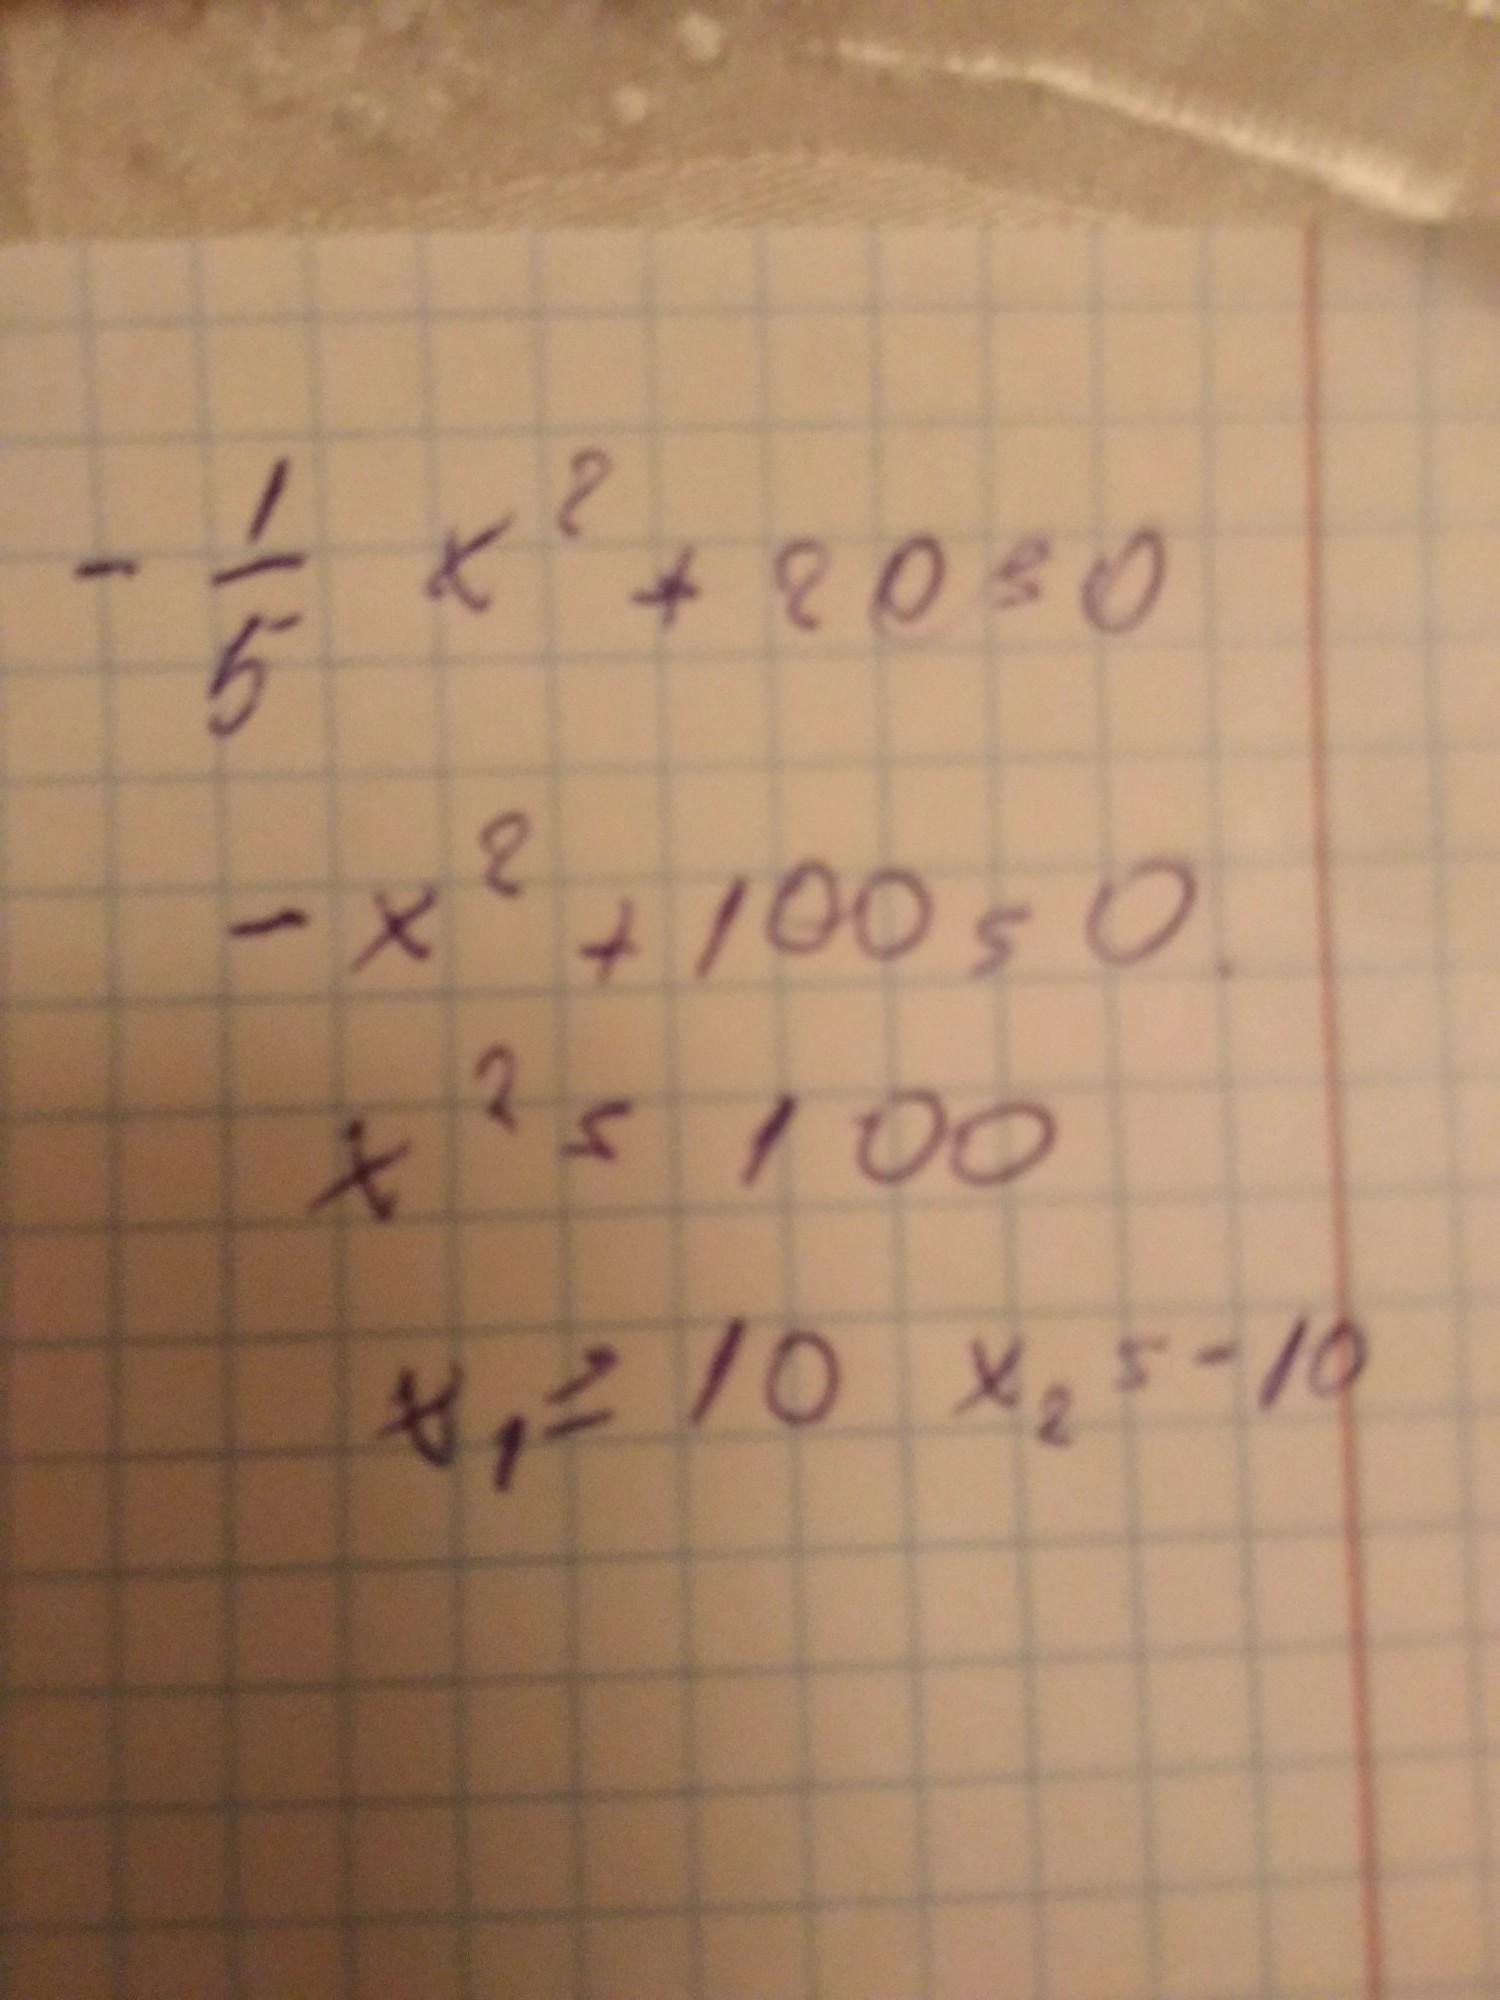 - 1/5 x² + 20 = 0
- x² + 100 = 0.
x² = 100
x₁ = 10 x₂ = -10